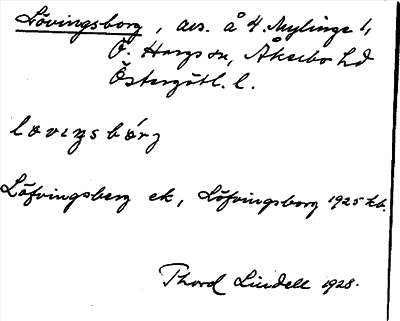 Lövingsborg, avs. å 4. Mylinge 1,
Ö. Hargs sn, Åkerbo hd
Östergötl. l.
lovingsbórg
Löfvingsberg ek, Löfvingsborg 1925 kb.
Thord Lindell 1928.